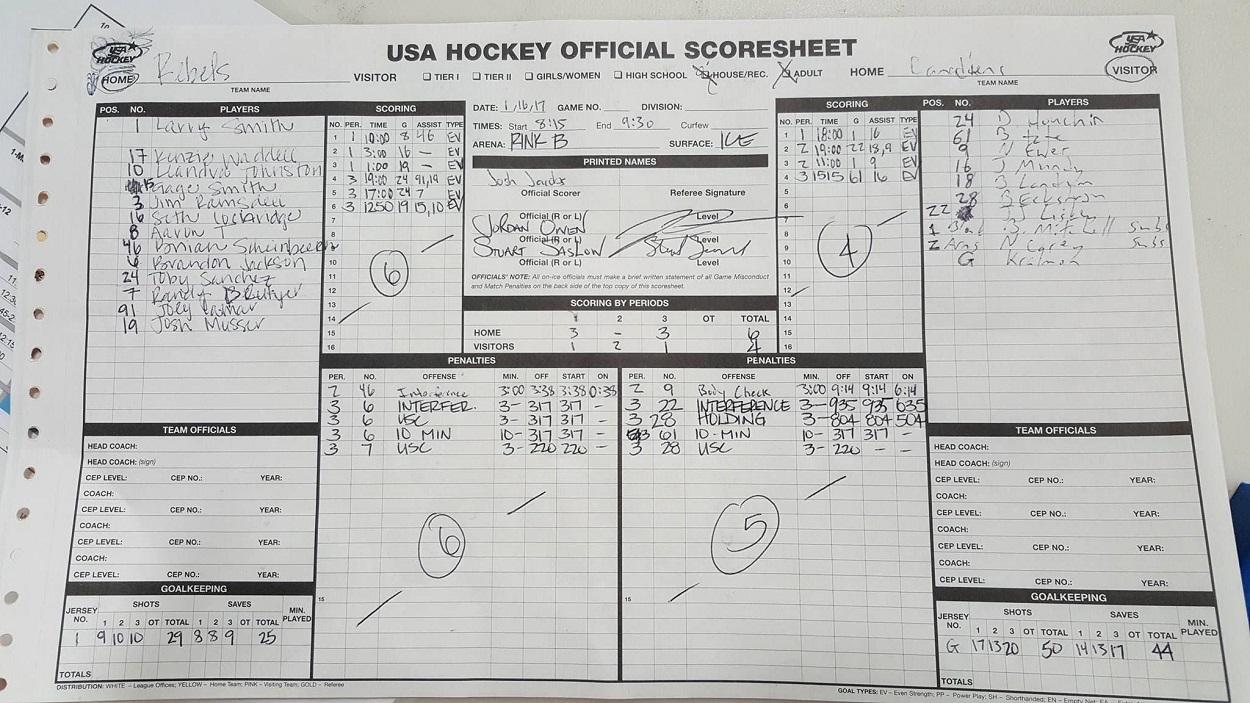 USA HOCKEY OFFICIAL SCORESHEET
USA HOCKEY
HOME
Rebels
VISITOR
TEAM NAME
TIER I TIER II GIRLS/WOMEN HIGH SCHOOL HOUSE/REC. ADULT
HOME
TEAM NAME
USA HOCKEY
VISITOR
POS. NO. PLAYERS
1 Larry Smith
17 Kenzie Waddell
10 Johnston
15 Gage Smith
3 Jim Ramsdell
16 Seth Lockridge
8 Aaron T
46
6 Brandon Jackson
24 Toby Sanchez
7 Randy
91 Joey
19 Josh Musser
SCORING
NO. PER. TIME G ASSIST TYPE
1 1 10:00 8 46 EV
2 1 3:00 16 — EV
3 1 1:00 19 — EV
4 3 19:00 24 91,19 EV
5 3 17:00 24 7 EV
6 3 1250 19 15,10 EV
7
8
9
10
11
12
13
14
15
16
6
DATE: 1/16/17 GAME NO. DIVISION:
TIMES: Start 8:15 End 9:30 Curfew
ARENA: RINK B SURFACE: ICE
PRINTED NAMES
Josh
Official Scorer Referee Signature
Official (R or L) Level
JORDAN OWEN
Official (R or L) Level
STUART JASLOW
Official (R or L) Level
OFFICIALS' NOTE: All on-ice officials must make a brief written statement of all Game Misconduct
and Match Penalties on the back side of the top copy of this scoresheet.
SCORING BY PERIODS
1 2 3 OT TOTAL
HOME 3 - 3 6
VISITORS 1 2 1 4
SCORING
NO. PER. TIME G ASSIST TYPE
1 1 18:00 1 16 EV
2 2 19:00 22 18,9 EV
3 2 11:00 1 9 EV
4 3 1515 61 16 EV
5
6
7
8
9
10
11
12
13
14
15
16
4
POS. NO. PLAYERS
24 D
61 B Tete
9 N Ewer
16 J Mundy
18 J
28 J
22 J
1 B. Mitchell Subs
2 N Corey Subs
G
PENALTIES
PER. NO. OFFENSE MIN. OFF START ON
2 46 Interference 3:00 3:38 3:38 0:38
3 6 INTERFER. 3- 317 317 -
3 6 USC 3- 317 317 -
3 6 10 MIN 10- 317 317 -
3 7 USC 3- 220 220 -
6
15
PENALTIES
PER. NO. OFFENSE MIN. OFF START ON
2 9 Body Check 3:00 9:14 9:14 6:14
3 22 INTERFERENCE 3- 935 935 635
3 28 HOLDING 3- 804 804 504
3 61 10-MIN 10- 317 317 -
3 28 USC 3- 220 - -
5
15
TEAM OFFICIALS
HEAD COACH:
HEAD COACH: (sign)
CEP LEVEL: CEP NO.: YEAR:
COACH:
CEP LEVEL: CEP NO.: YEAR:
COACH:
CEP LEVEL: CEP NO.: YEAR:
COACH:
CEP LEVEL: CEP NO.: YEAR:
GOALKEEPING
JERSEY NO. SHOTS SAVES MIN. PLAYED
1 2 3 OT TOTAL 1 2 3 OT TOTAL
1 9 10 10 29 8 8 9 25
TOTALS
TEAM OFFICIALS
HEAD COACH:
HEAD COACH: (sign)
CEP LEVEL: CEP NO.: YEAR:
COACH:
CEP LEVEL: CEP NO.: YEAR:
COACH:
CEP LEVEL: CEP NO.: YEAR:
COACH:
CEP LEVEL: CEP NO.: YEAR:
GOALKEEPING
JERSEY NO. SHOTS SAVES MIN. PLAYED
1 2 3 OT TOTAL 1 2 3 OT TOTAL
G 17 13 20 50 14 13 17 44
TOTALS
DISTRIBUTION: WHITE – League Offices; YELLOW – Home Team; PINK – Visiting Team; GOLD – Referee
GOAL TYPES: EV – Even Strength; PP – Power Play; SH – Shorthanded; EN – Empty Net;